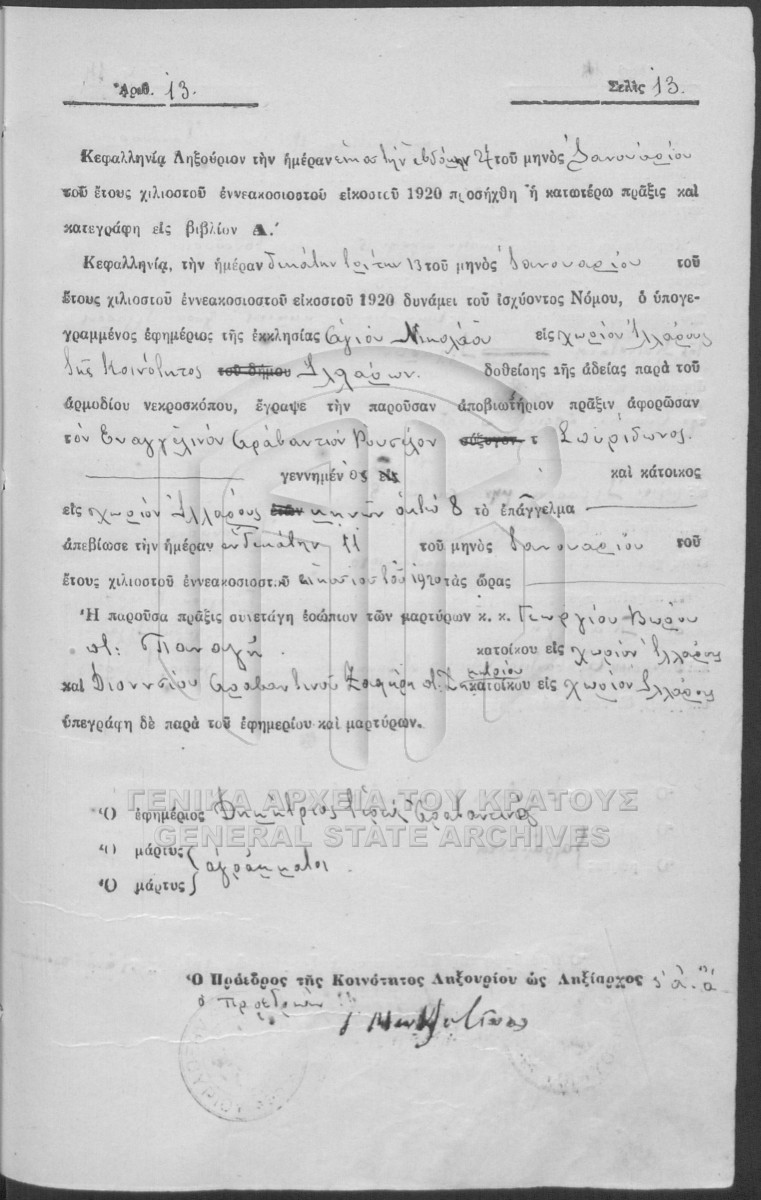 Ἀριθ. 13. Σελὶς 13.
Κεφαλληνίᾳ Ληξούριον τὴν ἡμέραν εἰκοστὴν ἑβδόμην 27 τοῦ μηνὸς Ἰανουαρίου
τοῦ ἔτους χιλιοστοῦ ἐννεακοσιοστοῦ εἰκοστοῦ 1920 προσήχθη ἡ κατωτέρω πρᾶξις καὶ
κατεγράφη εἰς βιβλίον Α.′
Κεφαλληνίᾳ, τὴν ἡμέραν δεκάτην τρίτην 13 τοῦ μηνὸς Ἰανουαρίου τοῦ
ἔτους χιλιοστοῦ ἐννεακοσιοστοῦ εἰκοστοῦ 1920 δυνάμει τοῦ ἰσχύοντος Νόμου, ὁ ὑπογε-
γραμμένος ἐφημέριος τῆς ἐκκλησίας Ἁγίου Νικολάου εἰς χωρίον
τῆς Κοινότητος τοῦ δήμου δοθείσης τῆς ἀδείας παρὰ τοῦ
ἁρμοδίου νεκροσκόπου, ἔγραψε τὴν παροῦσαν ἀποβιωτήριον πρᾶξιν ἀφορῶσαν
τὸν Εὐαγγελινὸν Ἀραβαντινὸν σύζυγον τ Σπυρίδωνος.
γεννημένος εἰς καὶ κάτοικος
εἰς χωρίον ἐτῶν μηνῶν ὀκτὼ 8 τὸ ἐπάγγελμα
ἀπεβίωσε τὴν ἡμέραν ἑνδεκάτην 11 τοῦ μηνὸς Ἰανουαρίου τοῦ
ἔτους χιλιοστοῦ ἐννεακοσιοστοῦ εἰκοστοῦ 1920 τὰς ὥρας
Ἡ παροῦσα πρᾶξις συνετάγη ἐνώπιον τῶν μαρτύρων κ. κ. Γεωργίου
Παναγῆ κατοίκου εἰς χωρίον
καὶ Διονυσίου Ἀραβαντινοῦ Δημητρίου κατοίκου εἰς χωρίον
ὑπεγράφη δὲ παρὰ τοῦ ἐφημερίου καὶ μαρτύρων.
ΓΕΝΙΚΑ ΑΡΧΕΙΑ ΤΟΥ ΚΡΑΤΟΥΣ
Ὁ ἐφημέριος Δημήτριος Ἱερεὺς Ἀραβαντινός
GENERAL STATE ARCHIVES
Ὁ μάρτυς
ἀγράμματοι
Ὁ μάρτυς
Ὁ Πρόεδρος τῆς Κοινότητος Ληξουρίου ὡς Ληξίαρχος
ὁ προεδρεύων